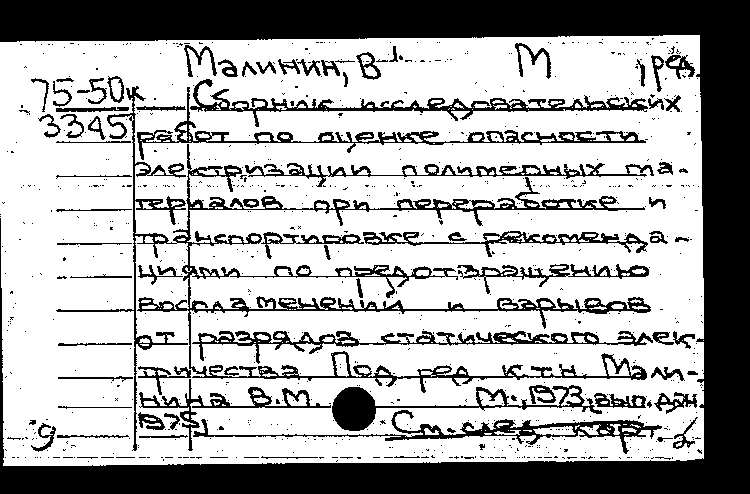 Малинин, В М , ред.
75-50к Сборник исследовательских
3345 работ по оценке опасности
электризации полимерных ма-
териалов при переработке и
транспортировке с рекоменда-
циями по предотвращению
воспламенений и взрывов
от разрядов статического элек-
тричества. Под ред. к.т.н. Мали-
нина В.М. М., 1973, вып. дан.
1975].
g См. след. карт.